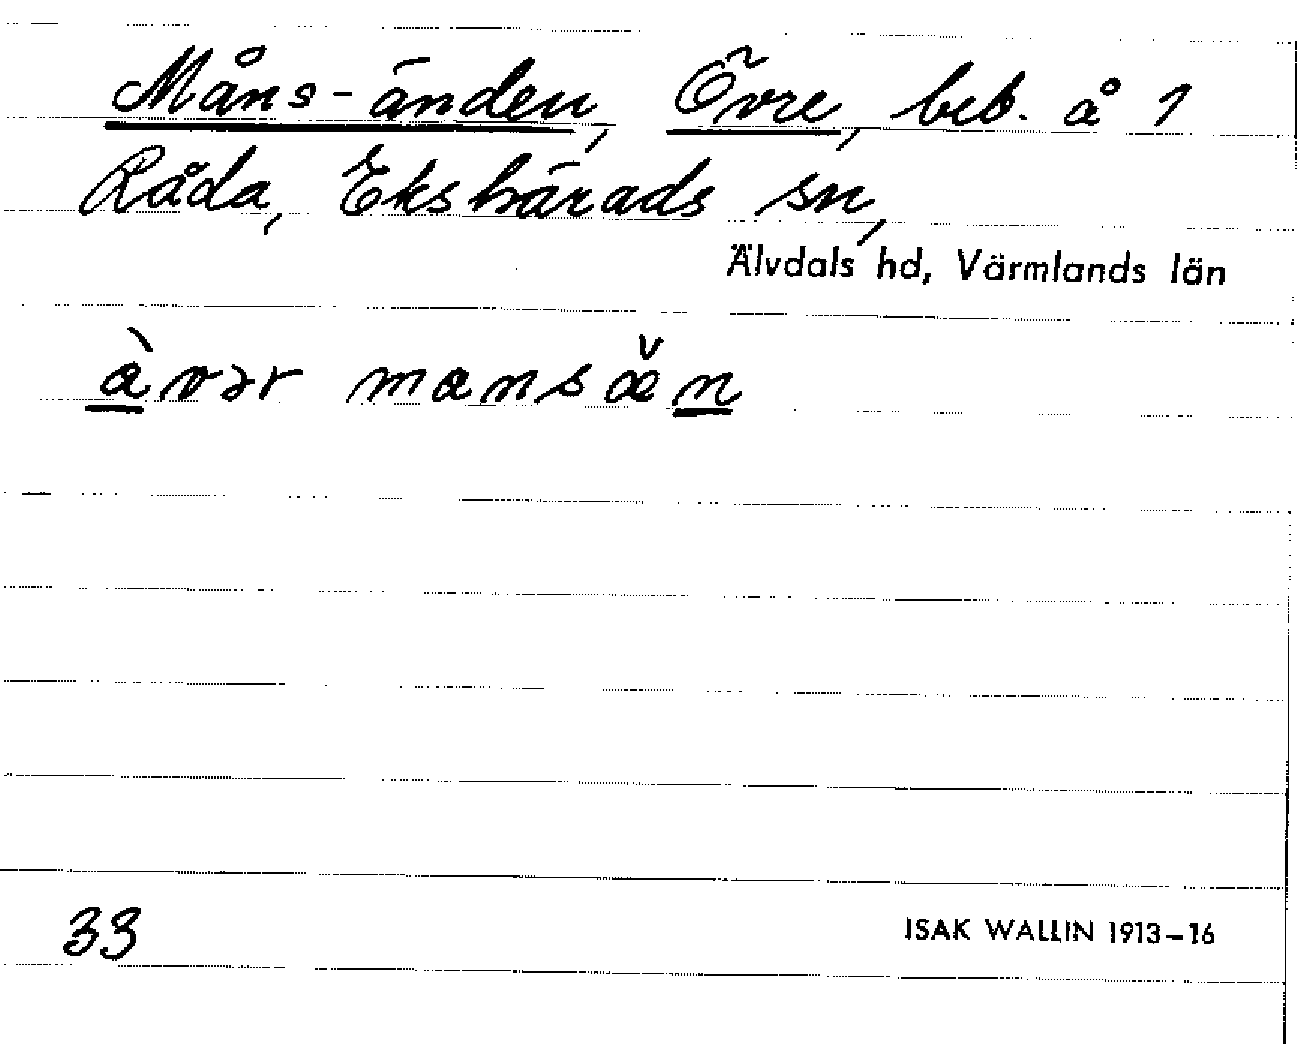 Måns-änden, Övre, beb. å 1
Råda, Ekshärads sn,
Älvdals hd, Värmlands län
àvər mansæ̌n
33
ISAK WALLIN 1913–16